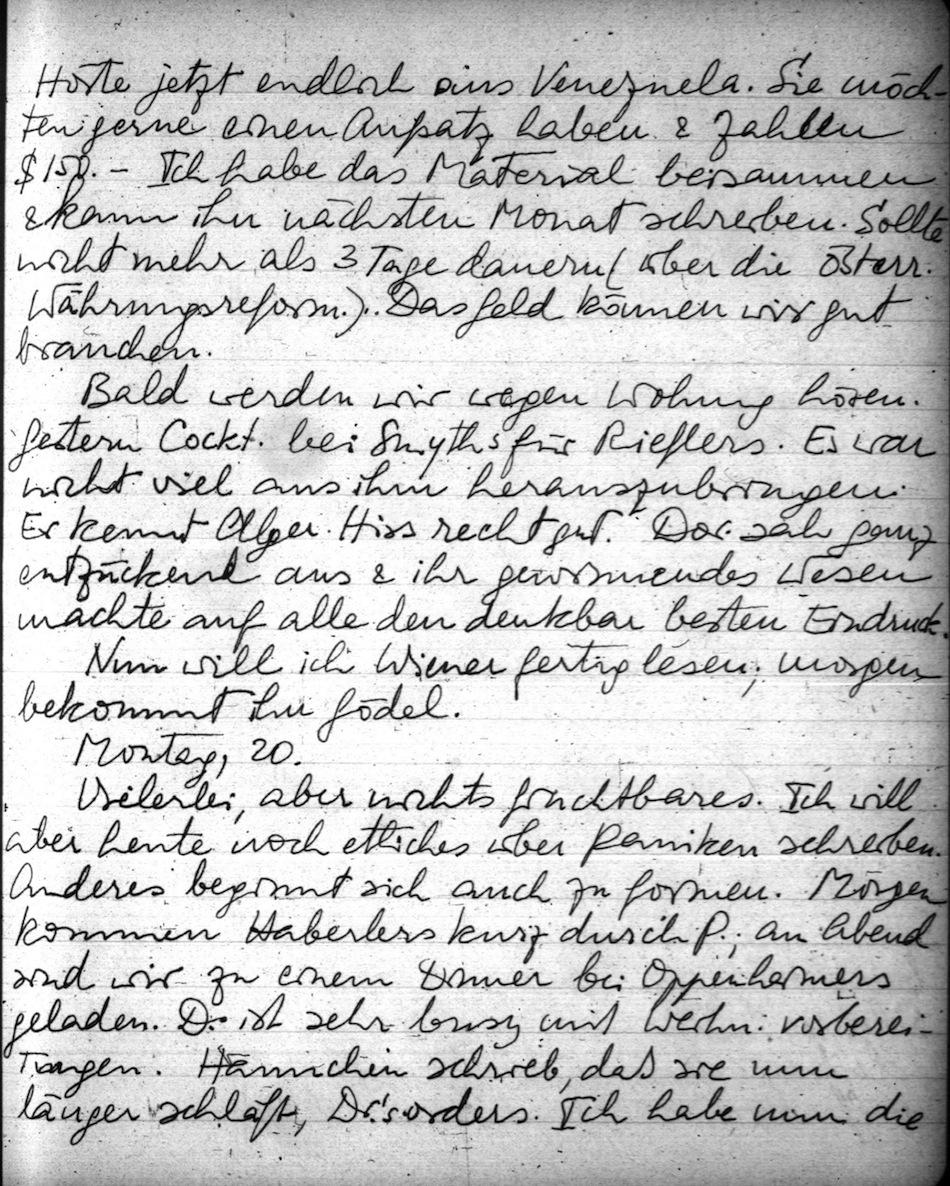 Hörte jetzt endlich aus Venezuela. Sie möch-
ten gerne einen Aufsatz haben & zahlen
$150.– Ich habe das Material beisammen
& kann ihn nächsten Monat schreiben. Sollte
nicht mehr als 3 Tage dauern (über die österr.
Währungsreform.). Das Geld können wir gut
brauchen.
Bald werden wir wegen Wohnung hören.
Gestern Cockt. bei Smyths für Rieflers. Es war
nicht viel aus ihm herauszubringen.
Er kennt Alger Hiss recht gut. Dor. sah ganz
entzückend aus & ihr gewinnendes Wesen
machte auf alle den denkbar besten Eindruck.
Nun will ich Wiener fertig lesen; morgen
bekommt ihn Gödel.
Montag, 20.
Vielerlei, aber nichts fruchtbares. Ich will
aber heute noch etliches über Paniken schreiben.
Anderes beginnt sich auch zu formen. Morgen
kommen Haberlers kurz durch P.; am Abend
sind wir zu einem Dinner bei Oppenheimers
geladen. D. ist sehr busy mit Weihn. vorberei-
tungen. Hannichen schrieb, daß sie nun
länger schläft, Dr.'s orders. Ich habe nun die